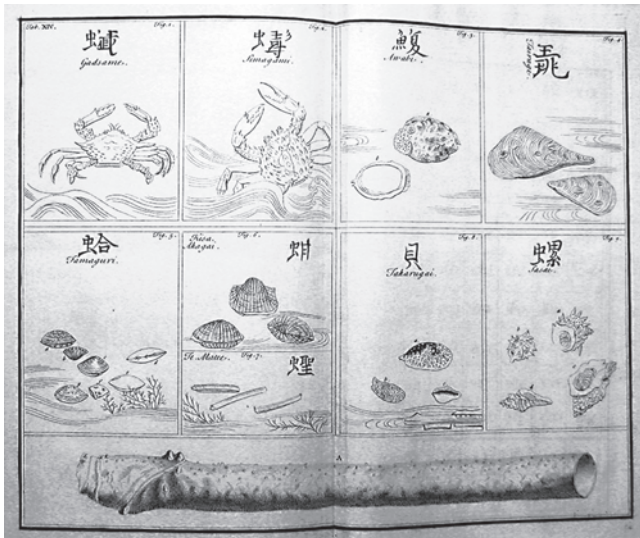 Tab. XIV.
Fig. 1.
Gadsame.
Fig. 2.
Simagani.
Fig. 3.
鰒
Awabi.
Fig. 4.
Fig. 5.
蛤
Famaguri.
Kisa,
Akagai.
Fig. 6.
蚶
Te Matee.
Fig. 7.
蟶
Fig. 8.
貝
Takaragai.
Fig. 9.
螺
Sasai.
A